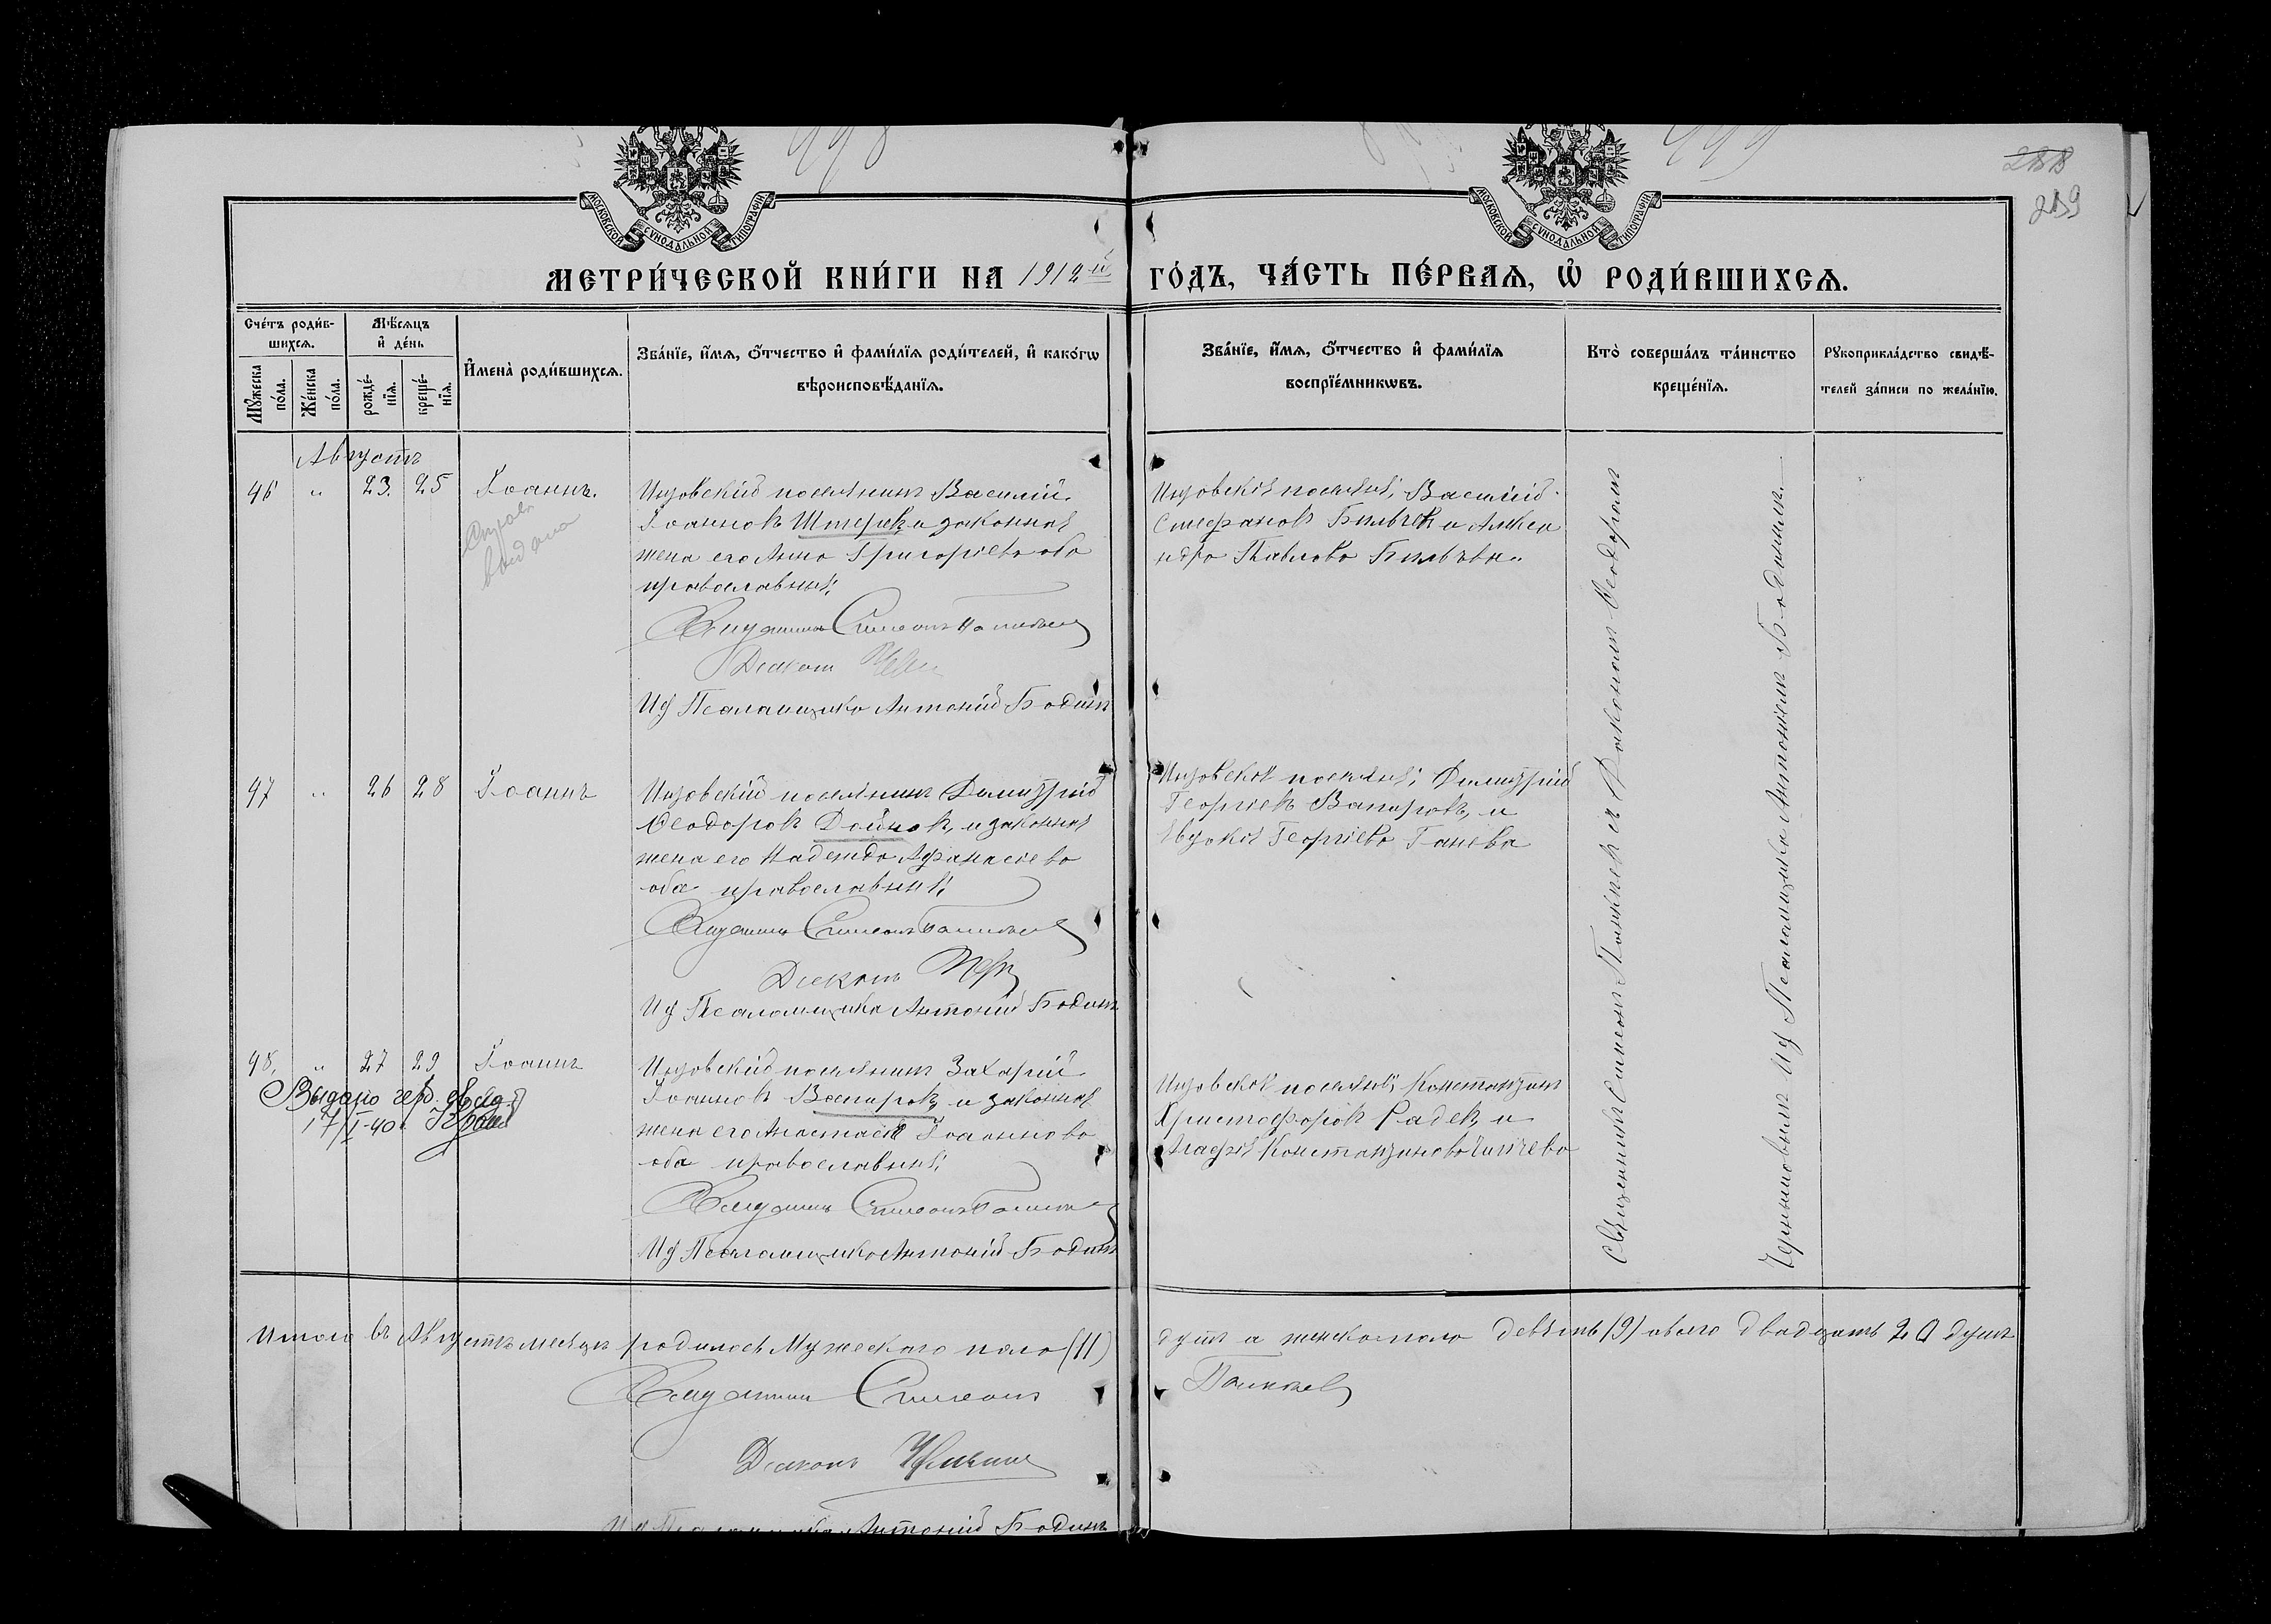 998
999
288
289
МОСКОВСКОЙ СѴНОДАЛЬНОЙ ТИПОГРАФІИ
МОСКОВСКОЙ СѴНОДАЛЬНОЙ ТИПОГРАФІИ
МЕТРИ́ЧЕСКОЙ КНИ́ГИ НА 1912 й
ГО́ДЪ, ЧА́СТЬ ПЕ́РВАѦ, Ѡ҆ РОДИ́ВШИХСѦ.
Сче́тъ роди́в-
шихсѧ.
Мѣ́сѧцъ
и҆ де́нь
Мꙋ́жеска
по́ла.
Же́нска
по́ла.
рожде́-
нїѧ.
креще́-
нїѧ.
И҆мена̀ роди́вшихсѧ.
Зва́нїе, и҆́мѧ, ѻ҆́тчество и҆ фами́лїѧ роди́телей, и҆ како́гѡ
вѣроисповѣ́данїѧ.
Зва́нїе, и҆́мѧ, ѻ҆́тчество и҆ фами́лїѧ
воспрїе́мникѡвъ.
Кто̀ соверша́лъ та́инство
креще́нїѧ.
Рꙋкоприкла́дство свидѣ́-
телей за́писи по жела́нїю.
Августъ
46 " 23. 25 Іоаннъ.
Справ
выдана
Инзовскій поселянинъ Василій
Іоанновъ Штеревъ и законная
жена его Анна Григоріева оба
православные
Священникъ Симеонъ
Діаконъ
Ид Псаломщика Антоній Бодинъ
Инзовскія поселяне, Василій
Стефановъ Бильчевъ и Алекса
ндра Павлова Бильчева
47 " 26 28 Іоаннъ
Инзовскій поселянинъ Димитрій
Ѳеодоровъ Дойновъ, и законная
жена его Надежда Афанасіева
оба православные
Священникъ Симеонъ
Діаконъ
Ид Псаломщика Антоній Бодинъ
Инзовскія поселяне, Димитрій
Георгіевъ Вапировъ, и
Евдокія Георгіева Ганева
48. " 27 29 Іоаннъ
Выдано
17/I-40
Инзовскій поселянинъ Захарій
Іоанновъ Вапировъ, и законная
жена его Анастасія Іоаннова
оба православные
Священникъ Симеонъ
Ид Псаломщика Антоній Бодинъ
Инзовскія поселяне, Константинъ
Христофоровъ Радевъ, и
Агафія Константинова
Священникъ Симеонъ и Діаконом Ѳеодоромъ
Ид Псаломщика Антоніемъ Бодинымъ.
Итого въ Августѣ месяцѣ родилось Мужескаго пола (11)
душъ а женскаго пола девять (9) обоего двадцать 20 душъ
Священникъ Симеонъ
Діаконъ
Ид Псаломщика Антоній Бодинъ